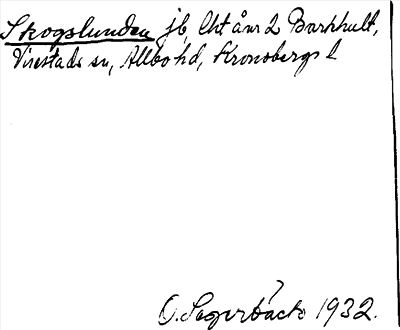 Skogslunden jb, Cht å nr 2 Barkhult,
Virestads sn, Allbo hd, Kronobergs l
O. Segerbäck 1932.